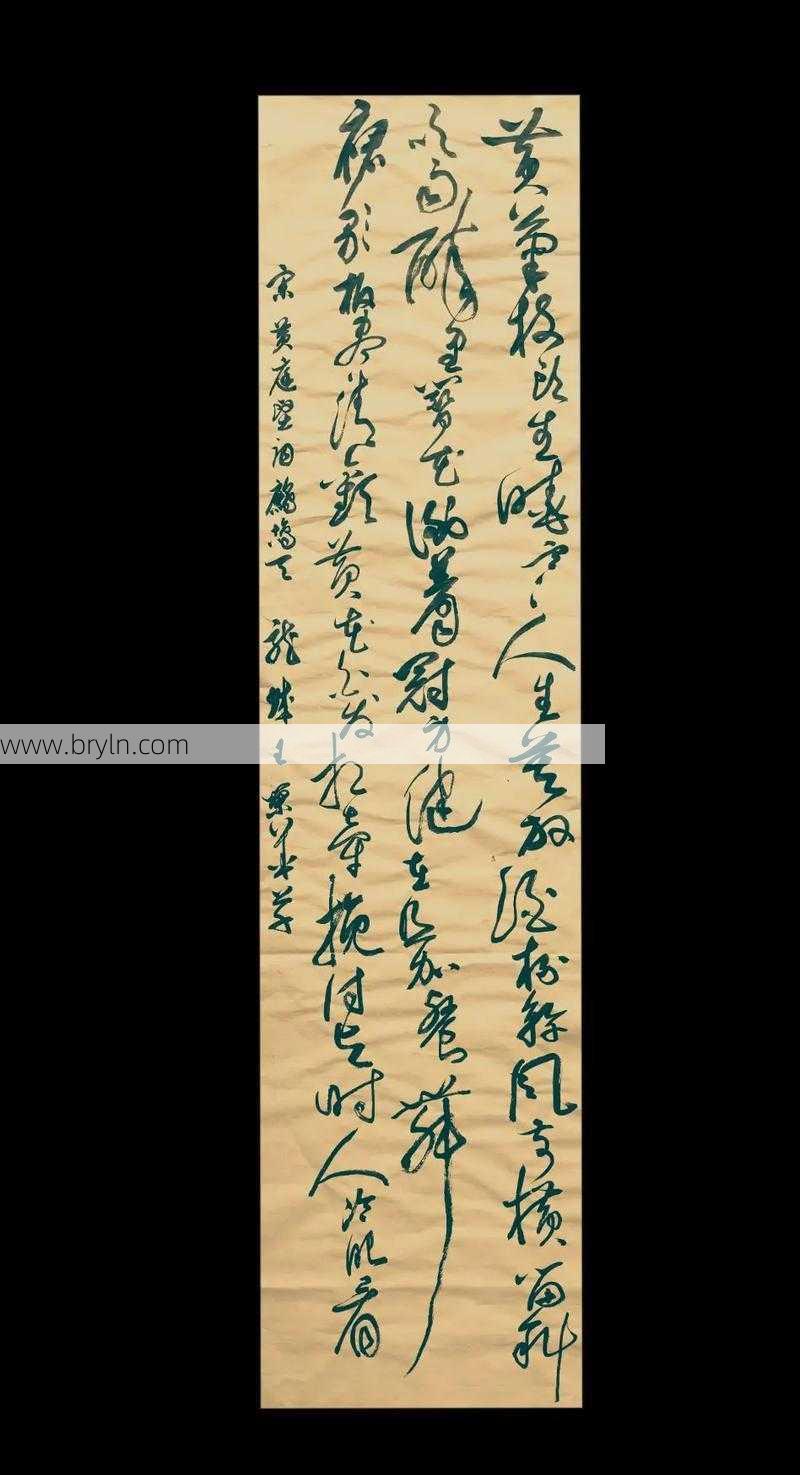 黄菊枝头生晓寒人生莫放酒杯乾风前横笛斜
吹雨醉里簪花倒着冠身健在且加餐舞
裙歌板尽清欢黄花白发相牵挽付与时人冷眼看
宋黄庭坚词鹧鸪天 龙城王
www.bryln.com